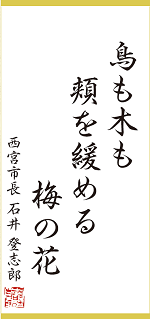 鳥も木も
頬を緩める
梅の花
西宮市長 石井 登志郎